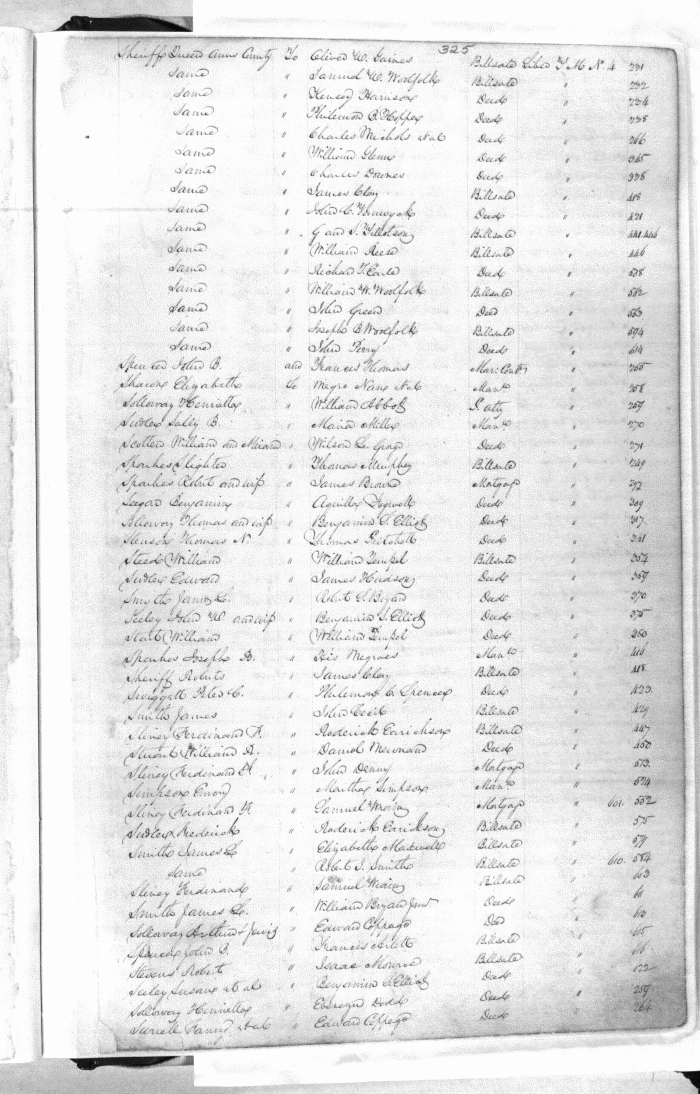 325
Sheriff Queen Anns County To Oliver W. Gaines Billsale Liber T M No 4 231
Same " Samuel W. Woolfolk Billsale " 232
Same " Kensey Harrison Deed " 234
Same " Philemon B. Hopper Deed " 238
Same " Charles Nichols et al Deed " 266
Same " William Glenn Deed " 345
Same " Charles Downes Deed " 338
Same " James Clay Billsale " 418
Same " John C. Deed " 421
Same " G and S. Tillotson Billsale " 441.444
Same " William Reese Billsale " 446
Same " Richard T. Deed " 538
Same " William W. Woolfolk Billsale " 552
Same " John Green Deed " 553
Same " Joseph B Woolfolk Billsale " 594
Same " John Perry Deed " 614
Spencer John B. and Frances Thomas Mar: Contr " 255
Elizabeth To Negro Nane et al Man " 258
Solloway Henrietta " William Abbott " 259
Sudler Sally B. " Maria Miller Man " 270
William and " Wilson L. Deed " 271
Sparkes " Thomas Murphey Billsale " 249
Sparkes Robt and wife " James Brown Mortgage " 292
Seegar Benjamin " Aquilla Deed " 309
Solloway Thomas and wife " Benjamin S. Elliott Deed " 317
Thomas N. " Thomas Deed " 341
Steed William " William Tempel Billsale " 354
Sudler Edward " James Hudson Deed " 359
Smyth James L. " Robt S. Bryan Deed " 370
Seeley John W. and wife " Benjamin S. Elliott Deed " 375
William " William Tempel Deed " 380
Sparkes Joseph B. " His Negroes Man " 416
Sheriff Roberts " James Clay Billsale " 418
Swiggett Peter C. " Philemon C. Spencer Deed " 423
Smith James " John Cecil Billsale " 429
Ferdinand H. " Roderick Earickson Billsale " 447
Stuart William A. " Daniel Newnam Deed " 450
Ferdinand H. " John Denny Mortgage " 513
Simpson Emory " Martha Simpson Man " 524
Ferdinand H " Samuel Mortgage " 601. 552
Sudler Frederick " Roderick Earickson Billsale " 575
Smith James L " Elizabeth Maxwell Billsale " 579
Same " Robt S. Smith Billsale " 610. 584
Ferdinand " Samuel Billsale 603
Smith James L. " William Bryan Junr Deed "
Solloway Arthur & Edward Coppage Deed "
Spencer John B. " Frances Billsale " 615
Stevens Robert " Isaac Monroe Billsale " 616
Seeley Susan et al " Benjamin S. Elliott Deed " 622
Solloway Henrietta " Dodd Deed " 259
et al " Edward Coppage Deed " 264